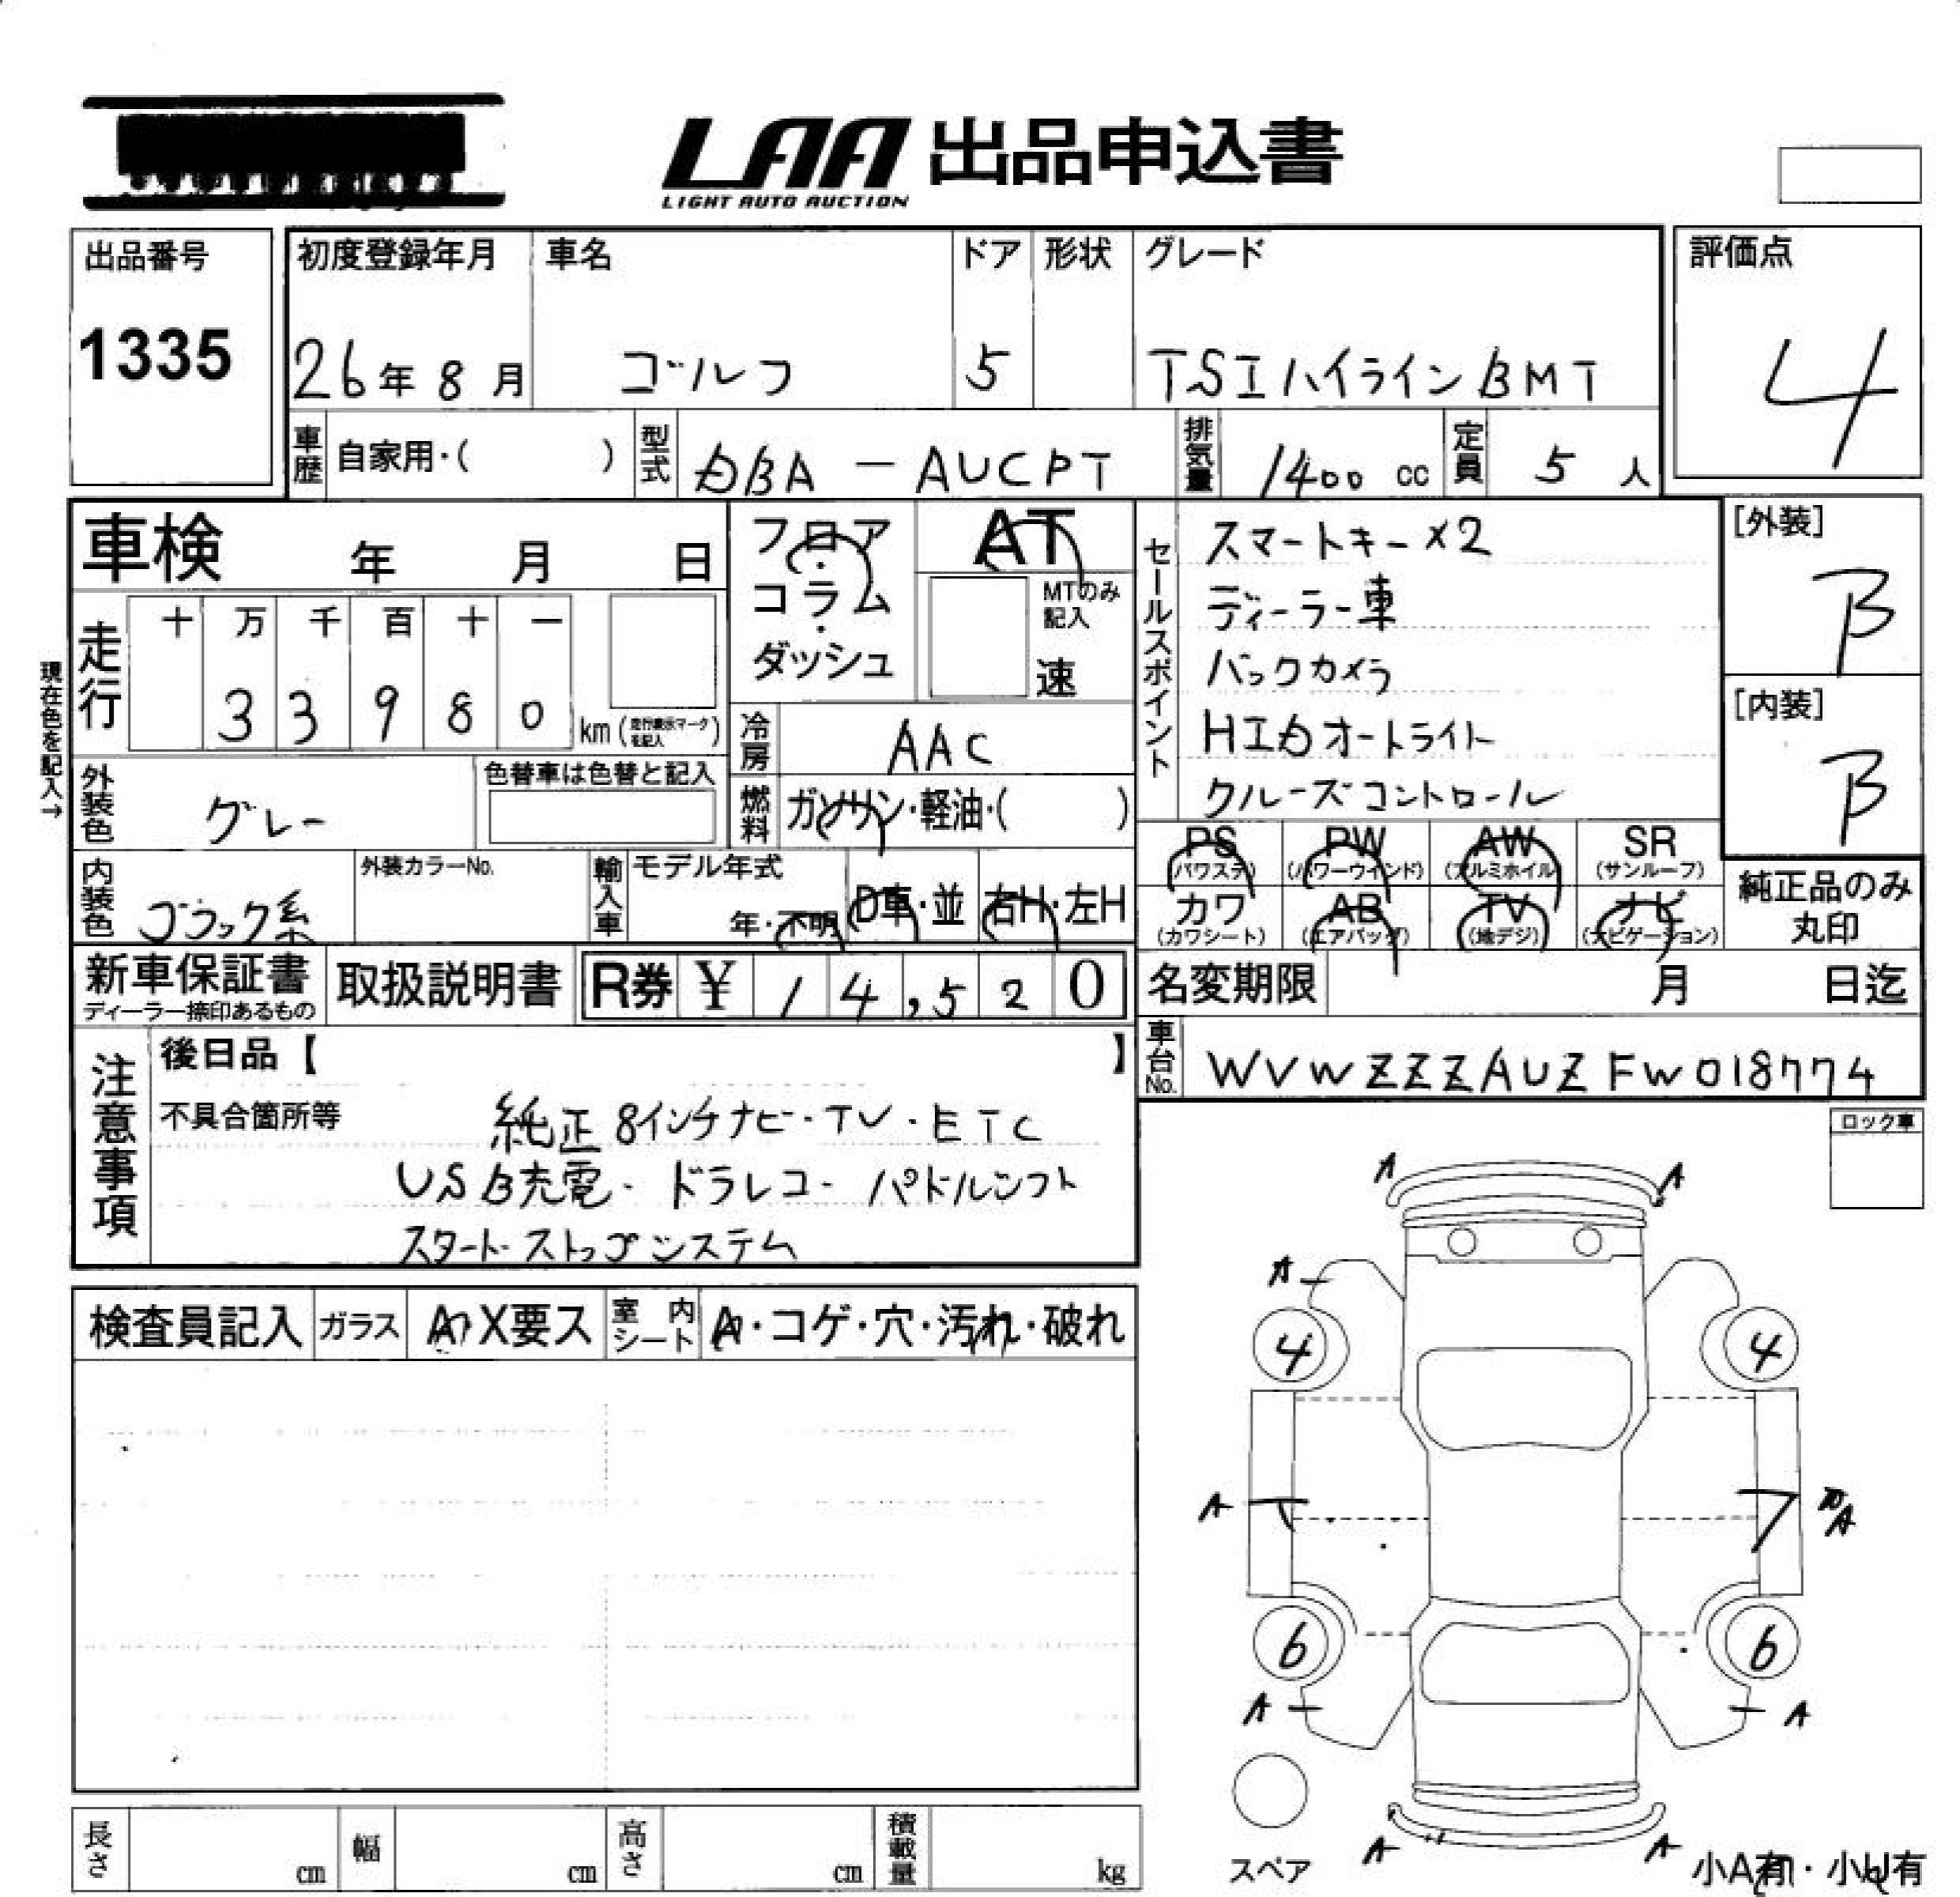 LAA 出品申込書
LIGHT AUTO AUCTION
出品番号
1335
初度登録年月
26年8月
車名
ゴルフ
ドア
5
形状
グレード
TSIハイラインBMT
評価点
4
車歴
自家用・( )
型式
DBA-AUCPT
排気量
1400 cc
定員
5 人
車検 年 月 日
フロア・コラム・ダッシュ
AT
MTのみ記入
速
セールスポイント
スマートキー×2
ディーラー車
バックカメラ
HIDオートライト
クルーズコントロール
[外装]
B
[内装]
B
現在色を記入→
走行
十 万 千 百 十 一
3 3 9 8 0 km (走行表示マークを記入)
冷房
AAC
外装色
グレー
色替車は色替と記入
燃料
ガソリン・軽油・( )
PS (パワステ)
PW (パワーウインド)
AW (アルミホイル)
SR (サンルーフ)
内装色
ブラック系
外装カラーNo.
輸入車
モデル年式
年・不明
D車・並
右H・左H
カワ (カワシート)
AB (エアバッグ)
TV (地デジ)
ナビ (ナビゲーション)
純正品のみ丸印
新車保証書
ディーラー捺印あるもの
取扱説明書
R券 ¥ 14,520
名変期限 月 日迄
車台No.
WVWZZZAUZFW018774
注意事項
後日品【 】
不具合箇所等
純正8インチナビ・TV・ETC
USB充電・ドラレコ・パドルシフト
スタートストップシステム
ロック車
検査員記入
ガラス
A・X要ス
室内シート
A・コゲ・穴・汚れ・破れ
A A
A
4 4
A A
6 6
A A
スペア
A A
小A有・小U有
長さ cm
幅 cm
高さ cm
積載量 kg